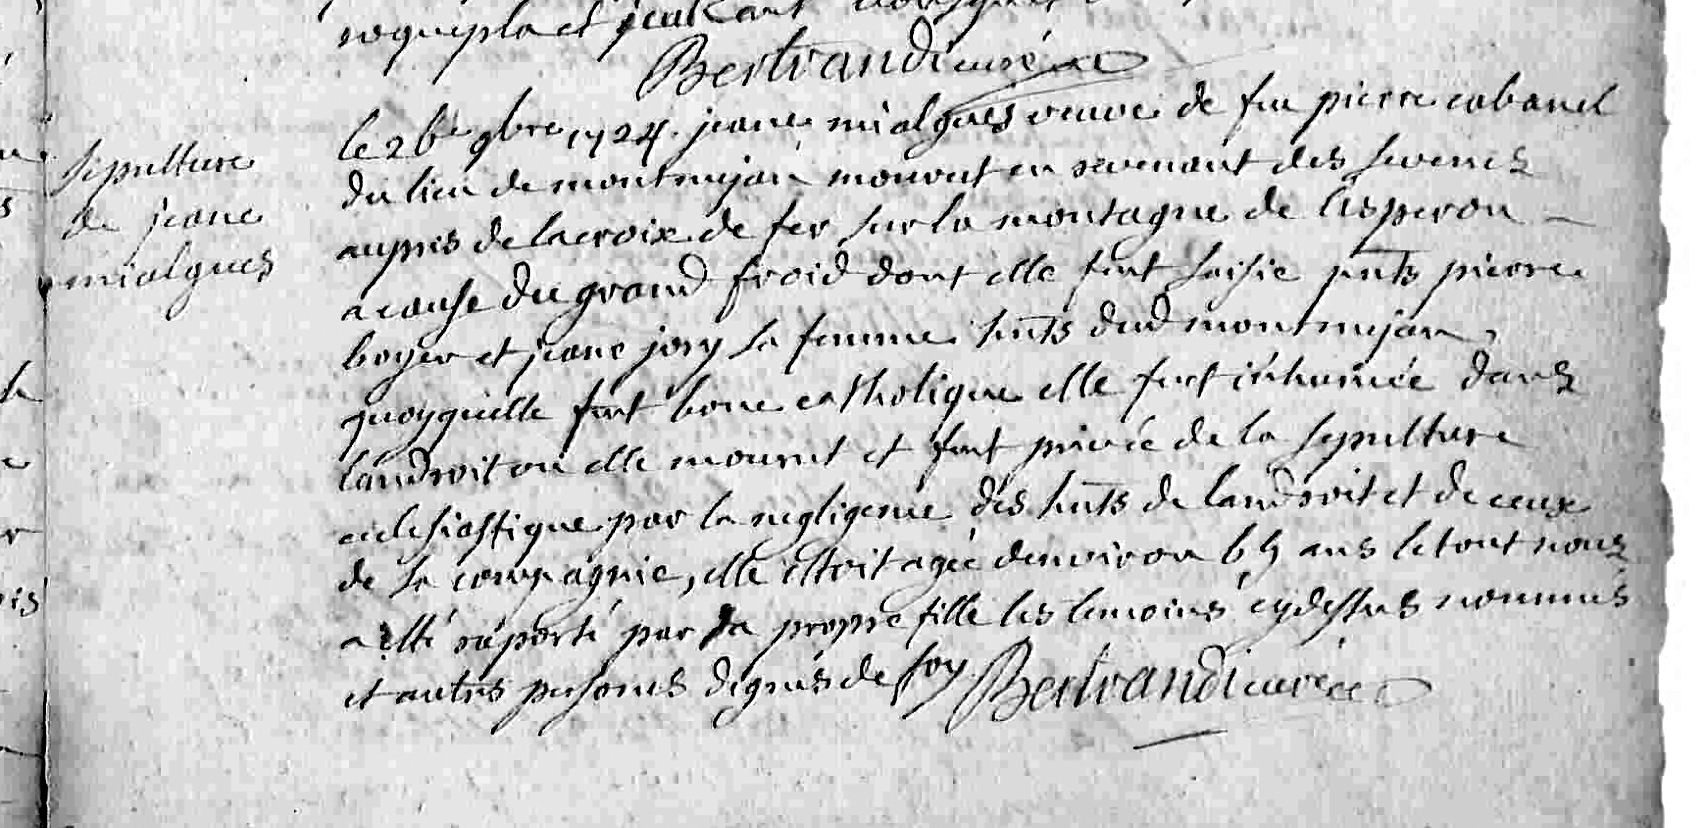 roquepla et jean
Bertrandi curé
sepulture
de jeane
mialgues
le 26e 9bre 1724. jeane mialgues veuve de feu pierre cabanel
du lieu de montmejan mourut en revenant des sevenes
aupres de lacroix de fer sur la montagne de lesperou
a cause du grand froid dont elle fut saisie pnts pierre
boyer et jeane jory sa femme hnts dud montmejan,
quoyquelle fut bone catholique elle fut inhumée dans
landroit ou elle mourut et fut privée de la sepulture
eclesiastique par la negligence des hnts de landroit et de ceux
de sa compagnie, elle estoit agée denviron 65 ans le tout nous
a esté raporté par sa propre fille les temoins cydessus nommés
et autres persones dignes de foy Bertrandi curé